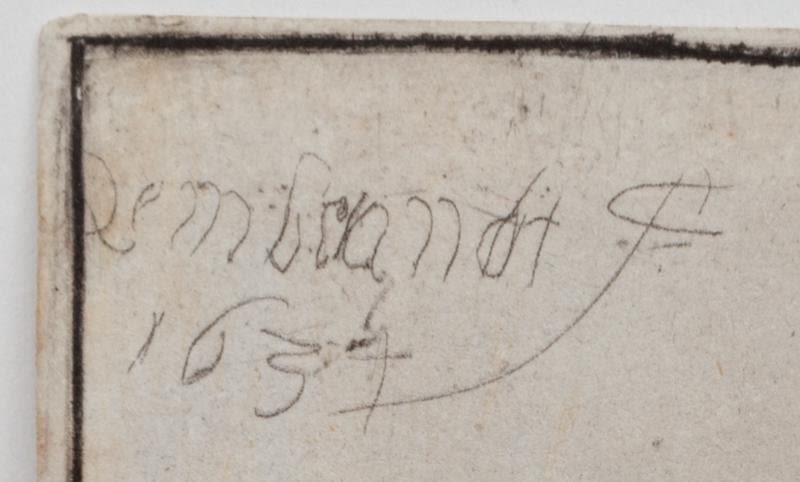 Rembrandt f
1634